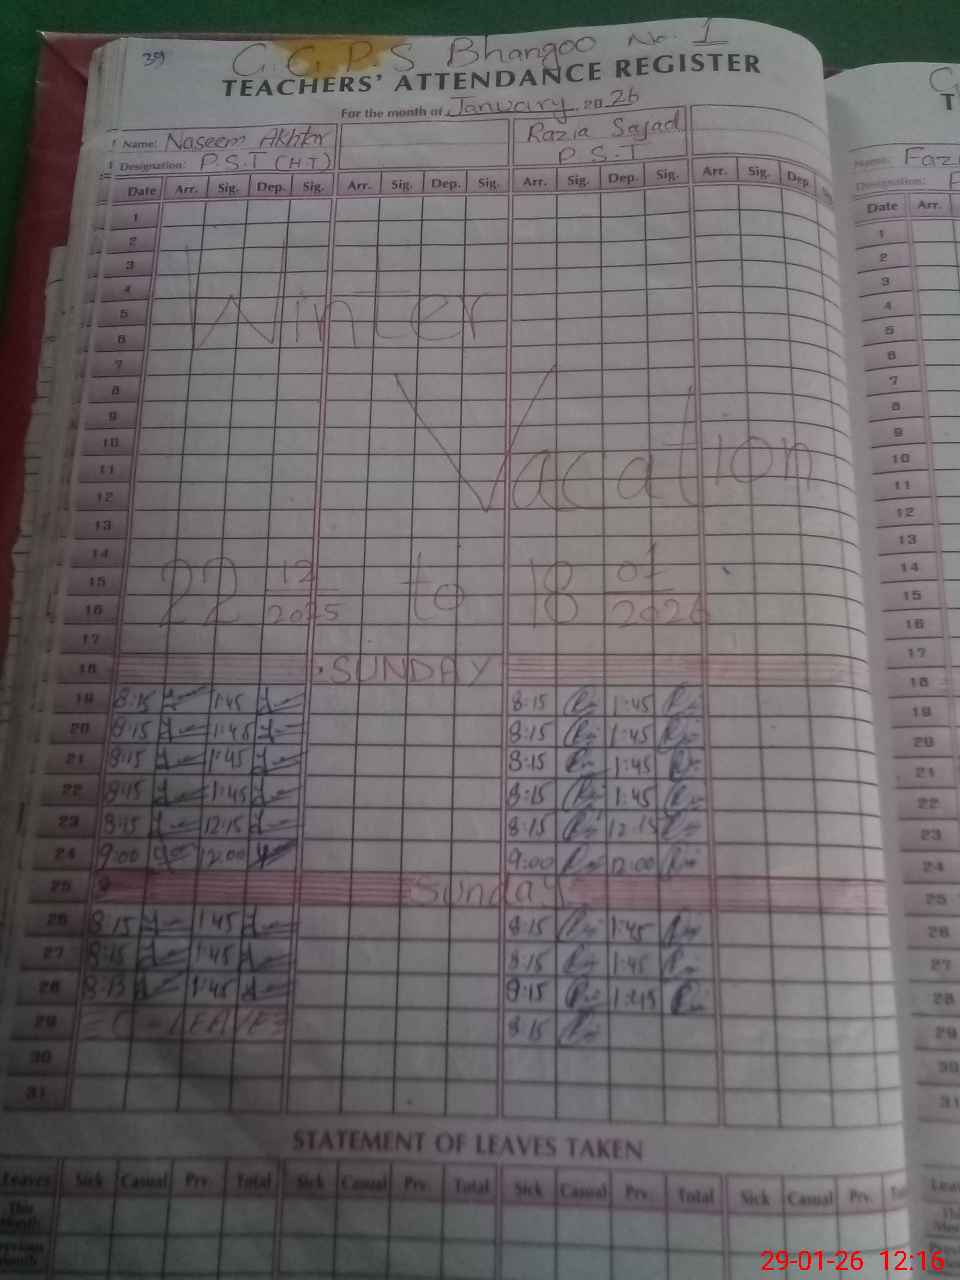 39
G.G.P.S Bhangoo No. 1
TEACHERS' ATTENDANCE REGISTER
For the month of January 2026
Name: Naseem Akhtar Razia Sajad
Designation: P.S.T (H.T) P.S.T
Date Arr. Sig. Dep. Sig. Arr. Sig. Dep. Sig. Arr. Sig. Dep. Sig. Arr. Sig. Dep.
1
2
3
4
5
6
Winter
7
8
9
10
11
12
Vacation
13
14
15
16
22 12/2025 to 18 01/2026
17
18 SUNDAY
19 8:15 1:45 8:15 1:45
20 8:15 1:45 8:15 1:45
21 8:15 1:45 8:15 1:45
22 8:15 1:45 8:15 1:45
23 8:15 12:15 8:15 12:15
24 9:00 12:00 9:00 12:00
25 Sunday
26 8:15 1:45 8:15 1:45
27 8:15 1:45 8:15 1:45
28 1:45 1:45
29 C-LEAVE 8:15
30
31
STATEMENT OF LEAVES TAKEN
Leaves Sick Casual Prv. Total Sick Casual Prv. Total Sick Casual Prv. Total Sick Casual Prv.
This Month
Previous Month
Name:
Designation:
Date Arr.
1
2
3
4
5
6
7
8
9
10
11
12
13
14
15
16
17
18
19
20
21
22
23
24
25
26
27
28
29
30
31
29-01-26 12:16